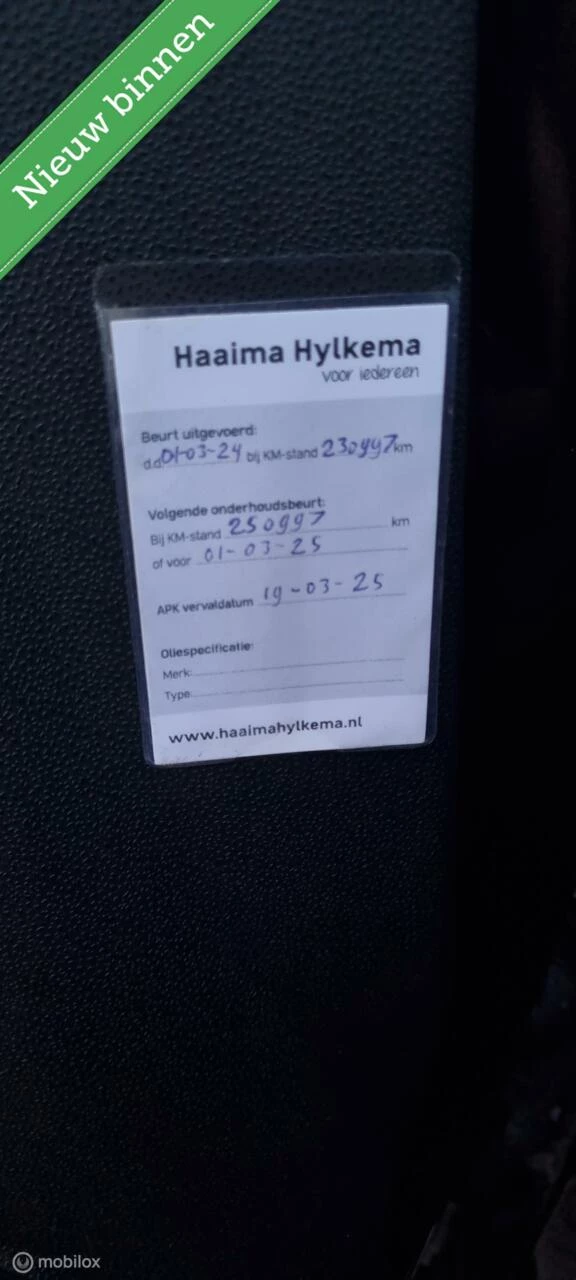 Nieuw binnen
Haaima Hylkema
voor iedereen
Beurt uitgevoerd:
d.d. 01-03-24 bij KM-stand 230997 km
Volgende onderhoudsbeurt:
Bij KM-stand 250997 km
of voor 01-03-25
APK vervaldatum 19-03-25
Oliespecificatie:
Merk:
Type:
www.haaimahylkema.nl
mobilox